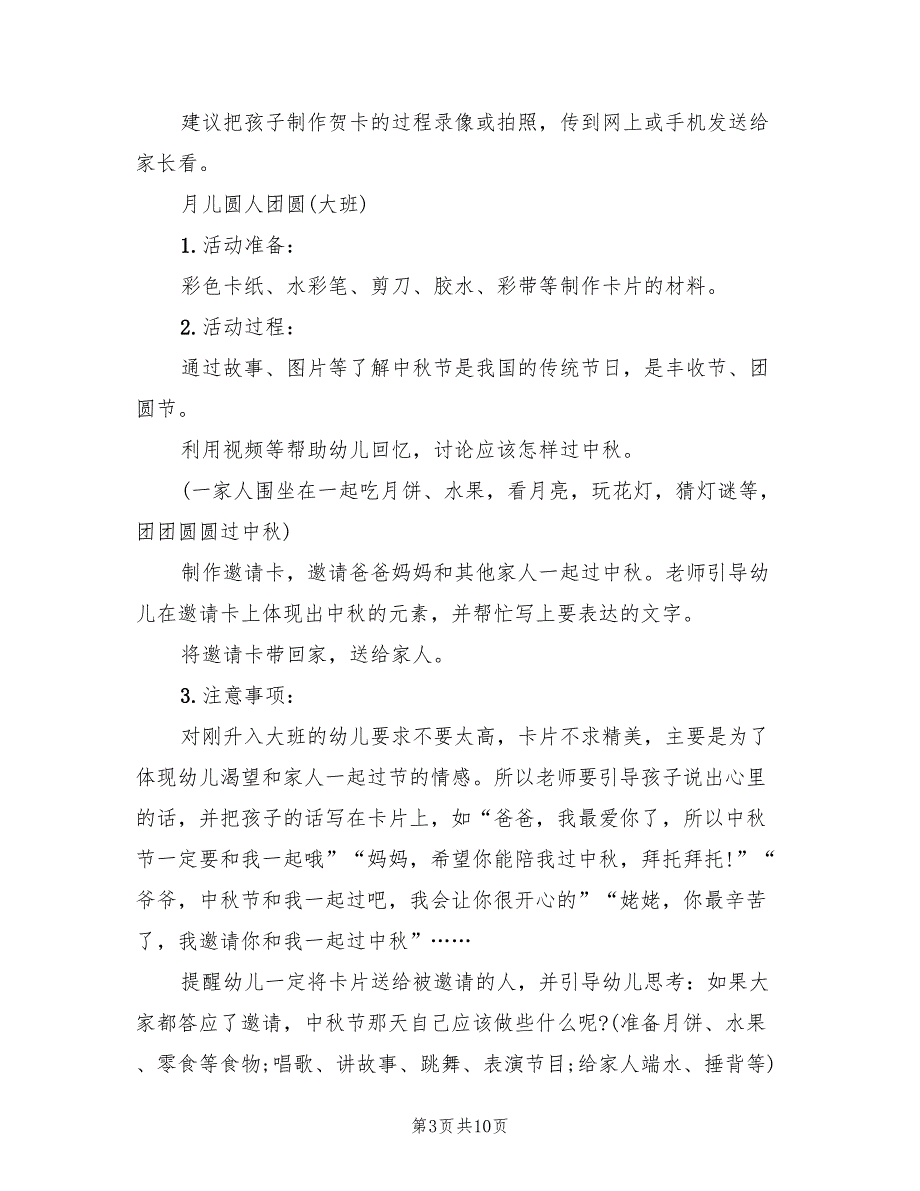 建议把孩子制作贺卡的过程录像或拍照，传到网上或手机发送给
家长看。
月儿圆人团圆(大班)
1.活动准备：
彩色卡纸、水彩笔、剪刀、胶水、彩带等制作卡片的材料。
2.活动过程：
通过故事、图片等了解中秋节是我国的传统节日，是丰收节、团
圆节。
利用视频等帮助幼儿回忆，讨论应该怎样过中秋。
(一家人围坐在一起吃月饼、水果，看月亮，玩花灯，猜灯谜等，
团团圆圆过中秋)
制作邀请卡，邀请爸爸妈妈和其他家人一起过中秋。老师引导幼
儿在邀请卡上体现出中秋的元素，并帮忙写上要表达的文字。
将邀请卡带回家，送给家人。
3.注意事项：
对刚升入大班的幼儿要求不要太高，卡片不求精美，主要是为了
体现幼儿渴望和家人一起过节的情感。所以老师要引导孩子说出心里
的话，并把孩子的话写在卡片上，如“爸爸，我最爱你了，所以中秋
节一定要和我一起哦”“妈妈，希望你能陪我过中秋，拜托拜托!”“
爷爷，中秋节和我一起过吧，我会让你很开心的”“姥姥，你最辛苦
了，我邀请你和我一起过中秋”……
提醒幼儿一定将卡片送给被邀请的人，并引导幼儿思考：如果大
家都答应了邀请，中秋节那天自己应该做些什么呢?(准备月饼、水果
、零食等食物;唱歌、讲故事、跳舞、表演节目;给家人端水、捶背等)
第3页共10页